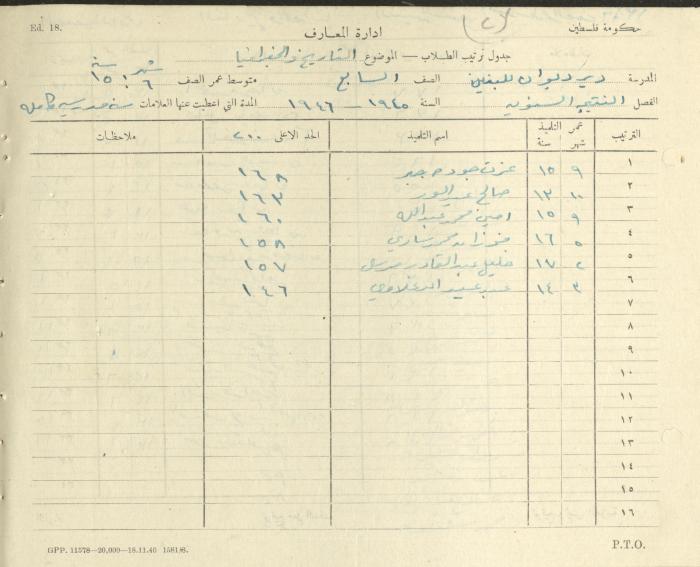 Ed. 18.
(ح)
حكومة فلسطين
ادارة المعارف
جدول ترتيب الطلاب — الموضوع التاريخ والجغرافيا
المدرسة دير ديوان للبنين الصف السابع متوسط عمر الصف شهر ٦ سنة ١٥
الفصل النتيجة السنوية السنة ١٩٤٥ – ١٩٤٦ المدة التي اعطيت عنها العلامات سنة مدرسية كاملة
الترتيب عمر التلميذ شهر سنة اسم التلميذ الحد الاعلى ٢٠٠ ملاحظات
١ ٩ ١٥ عزت جوده جبر ١٦٨
٢ ١٠ ١٣ صالح عبد ١٦٣
٣ ٩ ١٥ امين محمد عبدالله ١٦٠
٤ ٥ ١٦ فوزات محمد ساري ١٥٨
٥ ٢ ١٧ خليل عبد القادر مرعي ١٥٧
٦ ٣ ١٤ عبد ١٤٦
٧
٨
٩
١٠
١١
١٢
١٣
١٤
١٥
١٦
GPP. 11578—20,000—18.11.40 1581/6.
P.T.O.